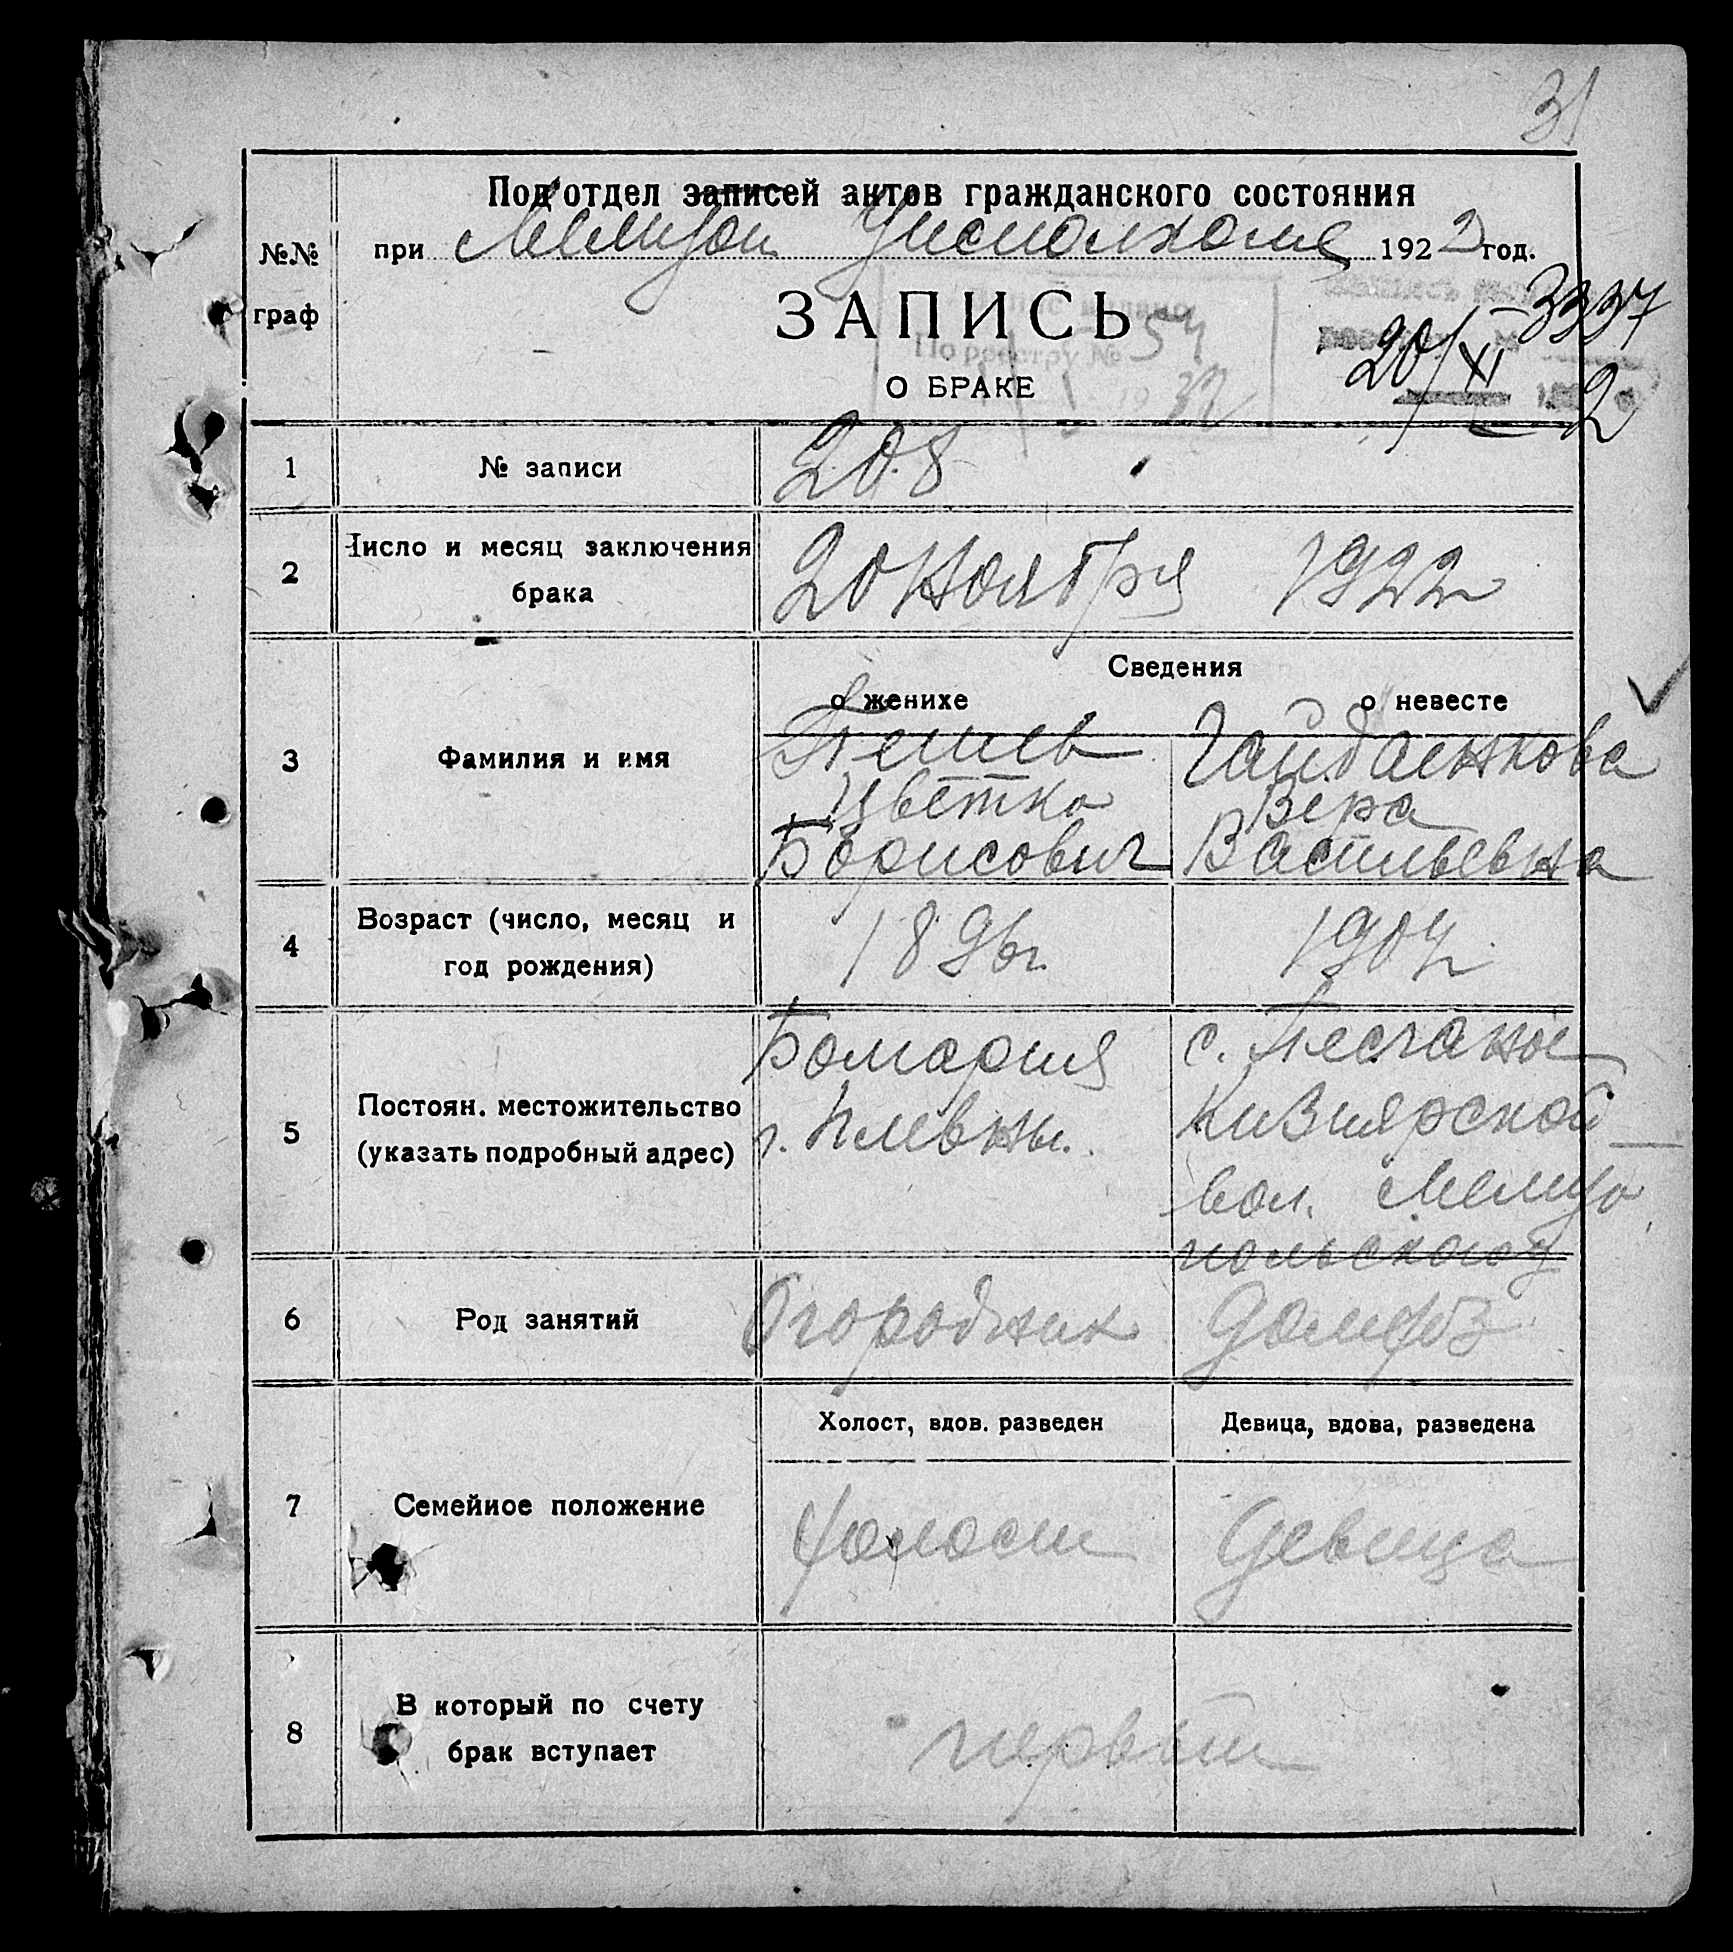 31
Под'отдел записей актов гражданского состояния
№№ граф
при Мелитоп Уисполкоме 1922 год.
ЗАПИСЬ
О БРАКЕ
выдано
По реестру № 54
1932
3337
20/XI 2
1 № записи 208
2 Число и месяц заключения брака 20 Ноября 1922
Сведения
о женихе о невесте
3 Фамилия и имя
Пешев Гайдаенкова
Цветко Вера
Борисович Васильевна
4 Возраст (число, месяц и год рождения) 1896г. 1904
5 Постоян. местожительство (указать подробный адрес)
Болгария с. Песчаное
г. Плевны. Кизиярской
вол. Мелито
польского у
6 Род занятий Огородник Домхоз
Холост, вдов. разведен Девица, вдова, разведена
7 Семейное положение Холост Девица
8 В который по счету брак вступает первый